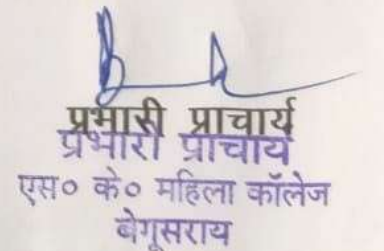 प्रभारी प्राचार्य
प्रभारी प्राचार्य
एस० के० महिला कॉलेज
बेगूसराय